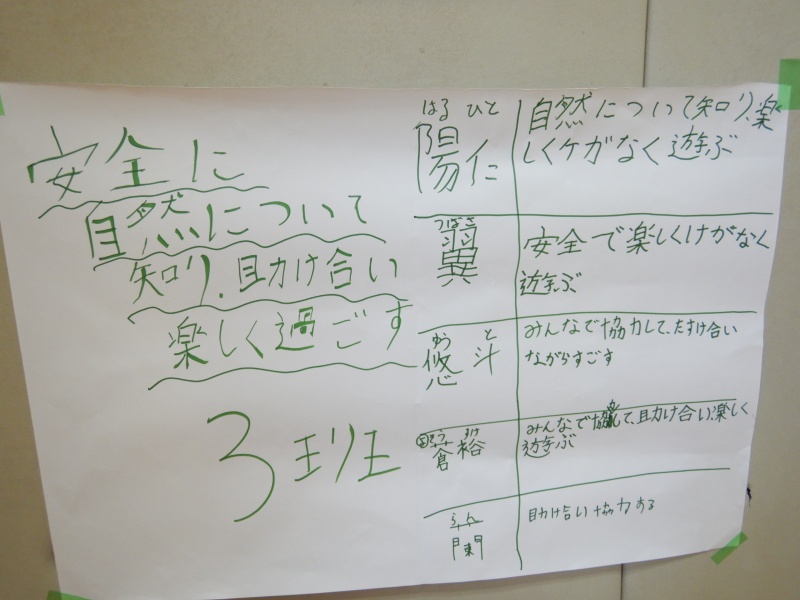 安全に
自然について
知り、助け合い
楽しく過ごす
3班
はる ひと
陽仁
自然について知り、楽
しくケガなく遊ぶ
つばさ
翼
安全で楽しくけがなく
遊ぶ
と
悠斗
みんなで協力して、たすけ合い
ながらすごす
すけ
蒼裕
みんなで協力して、助け合い、楽しく
遊ぶ
らん
蘭
助け合い協力する